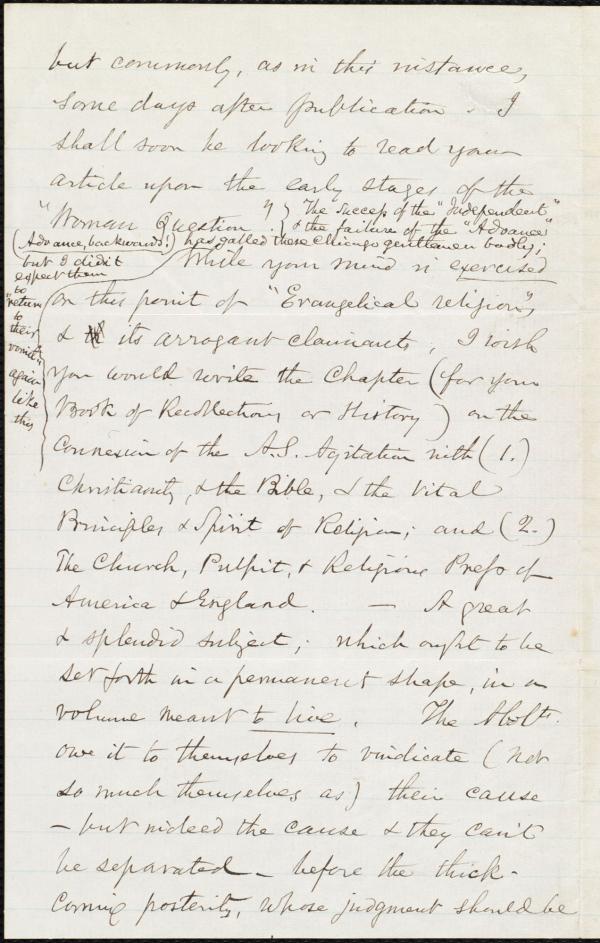 but commonly, as in this instance,
some days after publication. I
shall soon be looking to read your
article upon the early stages of the
"Woman Question"! } The success of the "Independent"
& the failure of the "Advance"
(Advance, backwards!) has galled these Chicago gentlemen badly;
but I did not
expect them
to
"return
to
their
vomit"
again
like
this
While your mind is exercised
on this point of "Evangelical religion",
& its arrogant claimants, I wish
you would write the Chapter (for your
Book of Recollections or History) on the
Connexion of the A.S. Agitation with (1.)
Christianity, & the Bible, & the Vital
Principles & Spirit of Religion; and (2.)
The Church, Pulpit, & Religious Press of
America & England. — A great
& splendid subject; which ought to be
set forth in a permanent shape, in a
volume meant to live. The Abolts.
owe it to themselves to vindicate (not
so much themselves as) their cause
– but indeed the cause & they can't
be separated – before the thick-
coming posterity, whose judgment should be